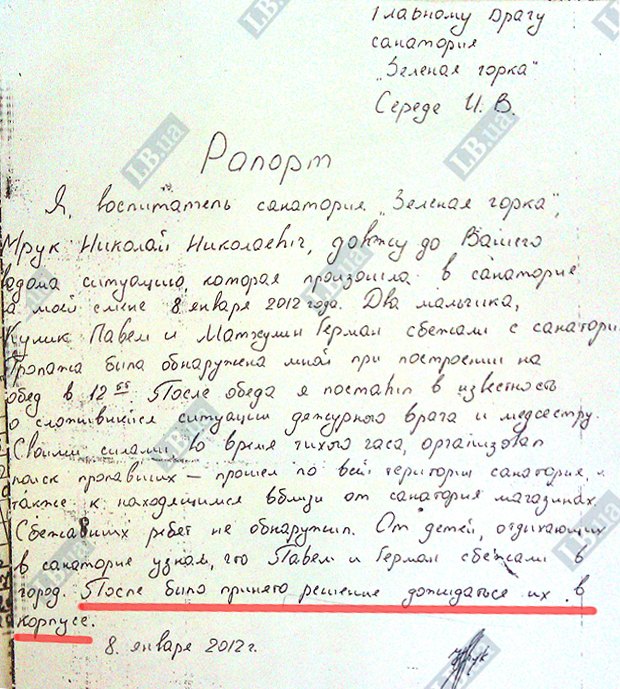 Главному Врачу
санатория
„Зеленая горка"
Середе И. В.
Рапорт
Я, воспитатель санатория „Зеленая горка",
Мрук Николай Николаевич, довжу до Вашего
ведома ситуацию, которая произошла в санатории
на моей смене 8 января 2012 года. Два мальчика,
Кулик Павел и Герман сбежали с санатория
Пропажа была обнаружена мной при построении на
обед в 12 55 После обеда я поставил в известность
о сложившейся ситуации дежурного врача и медсестру.
Своими силами, во время тихого часа, организовал
поиск пропавших – прошел по всей територии санатория, а
также к находящимся вблизи от санатория магазинах.
Сбежавших ребят не обнаружил. От детей, отдыхающих
в санатории узнал, что Павел и Герман сбежали в
город. После было принято решение дожидаться их в
корпусе.
8. января 2012 г.
LB.ua